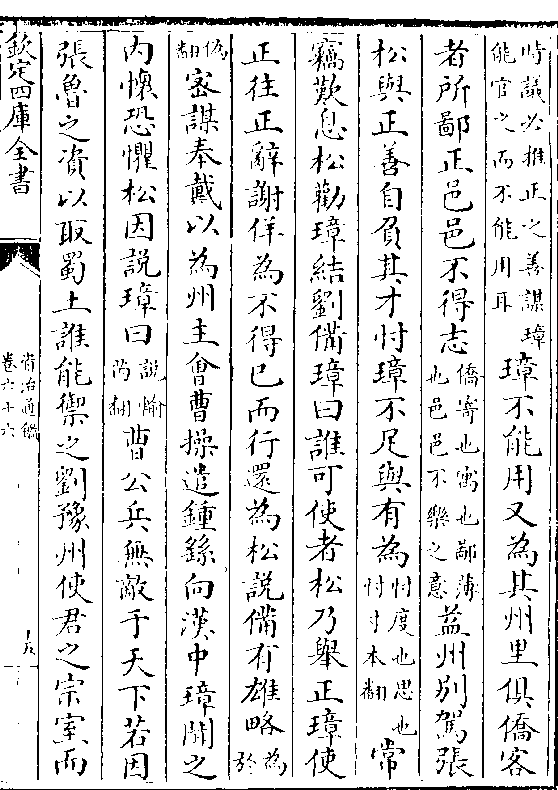 時議必推正之善謀璋
能官之而不能用耳
璋不能用又為其州里俱僑客
者所鄙正邑邑不得志
僑寄也寓也鄙薄
也邑邑不樂之意
益州别駕張
松與正善自負其才忖璋不足與有為
忖度也思也
忖寸本翻
常
竊歎息松勸璋結劉備璋曰誰可使者松乃舉正璋使
正往正辭謝佯為不得已而行還為松説備有雄略
為
於
偽
翻
密謀奉戴以為州主會曹操遣鍾繇向漢中璋聞之
内懷恐懼松因説璋曰
説輸
芮翻
曹公兵無敵于天下若因
張魯之資以取蜀土誰能禦之劉豫州使君之宗室而
欽定四庫全書
資治通鑑
卷六十六
十五